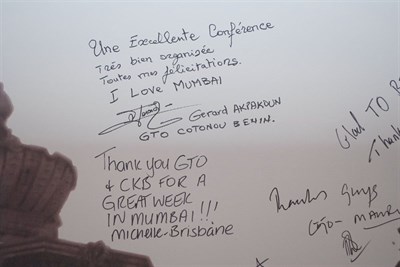 Une Excellente Conférence
Très bien organisée
Toutes mes félicitations.
I LOVE MUMBAI
Gerard AKPAKOUN
GTO COTONOU BENIN.
Thank you GTO
& CKB FOR A
GREAT WEEK
IN MUMBAI!!!
Michelle-Brisbane
Glad TO
Thank
Thanks Guys
GTO-